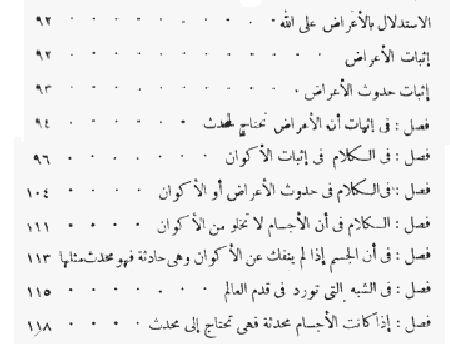 الاستدلال بالأعراض على الله . . . . . . . . ٩٢
إثبات الأعراض . . . . . . . . . ٩٢
إثبات حدوث الأعراض . . . . . . . . ٩٣
فصل : فى إثبات أن الأعراض تحتاج لمحدث . . . . . . ٩٤
فصل : فى الكلام فى إثبات الأكوان . . . . . . ٩٦
فصل : فى الكلام فى حدوث الأعراض أو الأكوان . . . . ١٠٤
فصل : الكلام فى أن الأجسام لا تخلو من الأكوان . . . . ١١١
فصل : فى أن الجسم إذا لم ينفك عن الأكوان وهى حادثة فهو محدث مثلها ١١٣
فصل : فى الشبه التى تورد فى قدم العالم . . . . . . ١١٥
فصل : إذا كانت الأجسام محدثة فهى تحتاج إلى محدث . . . . ١١٨